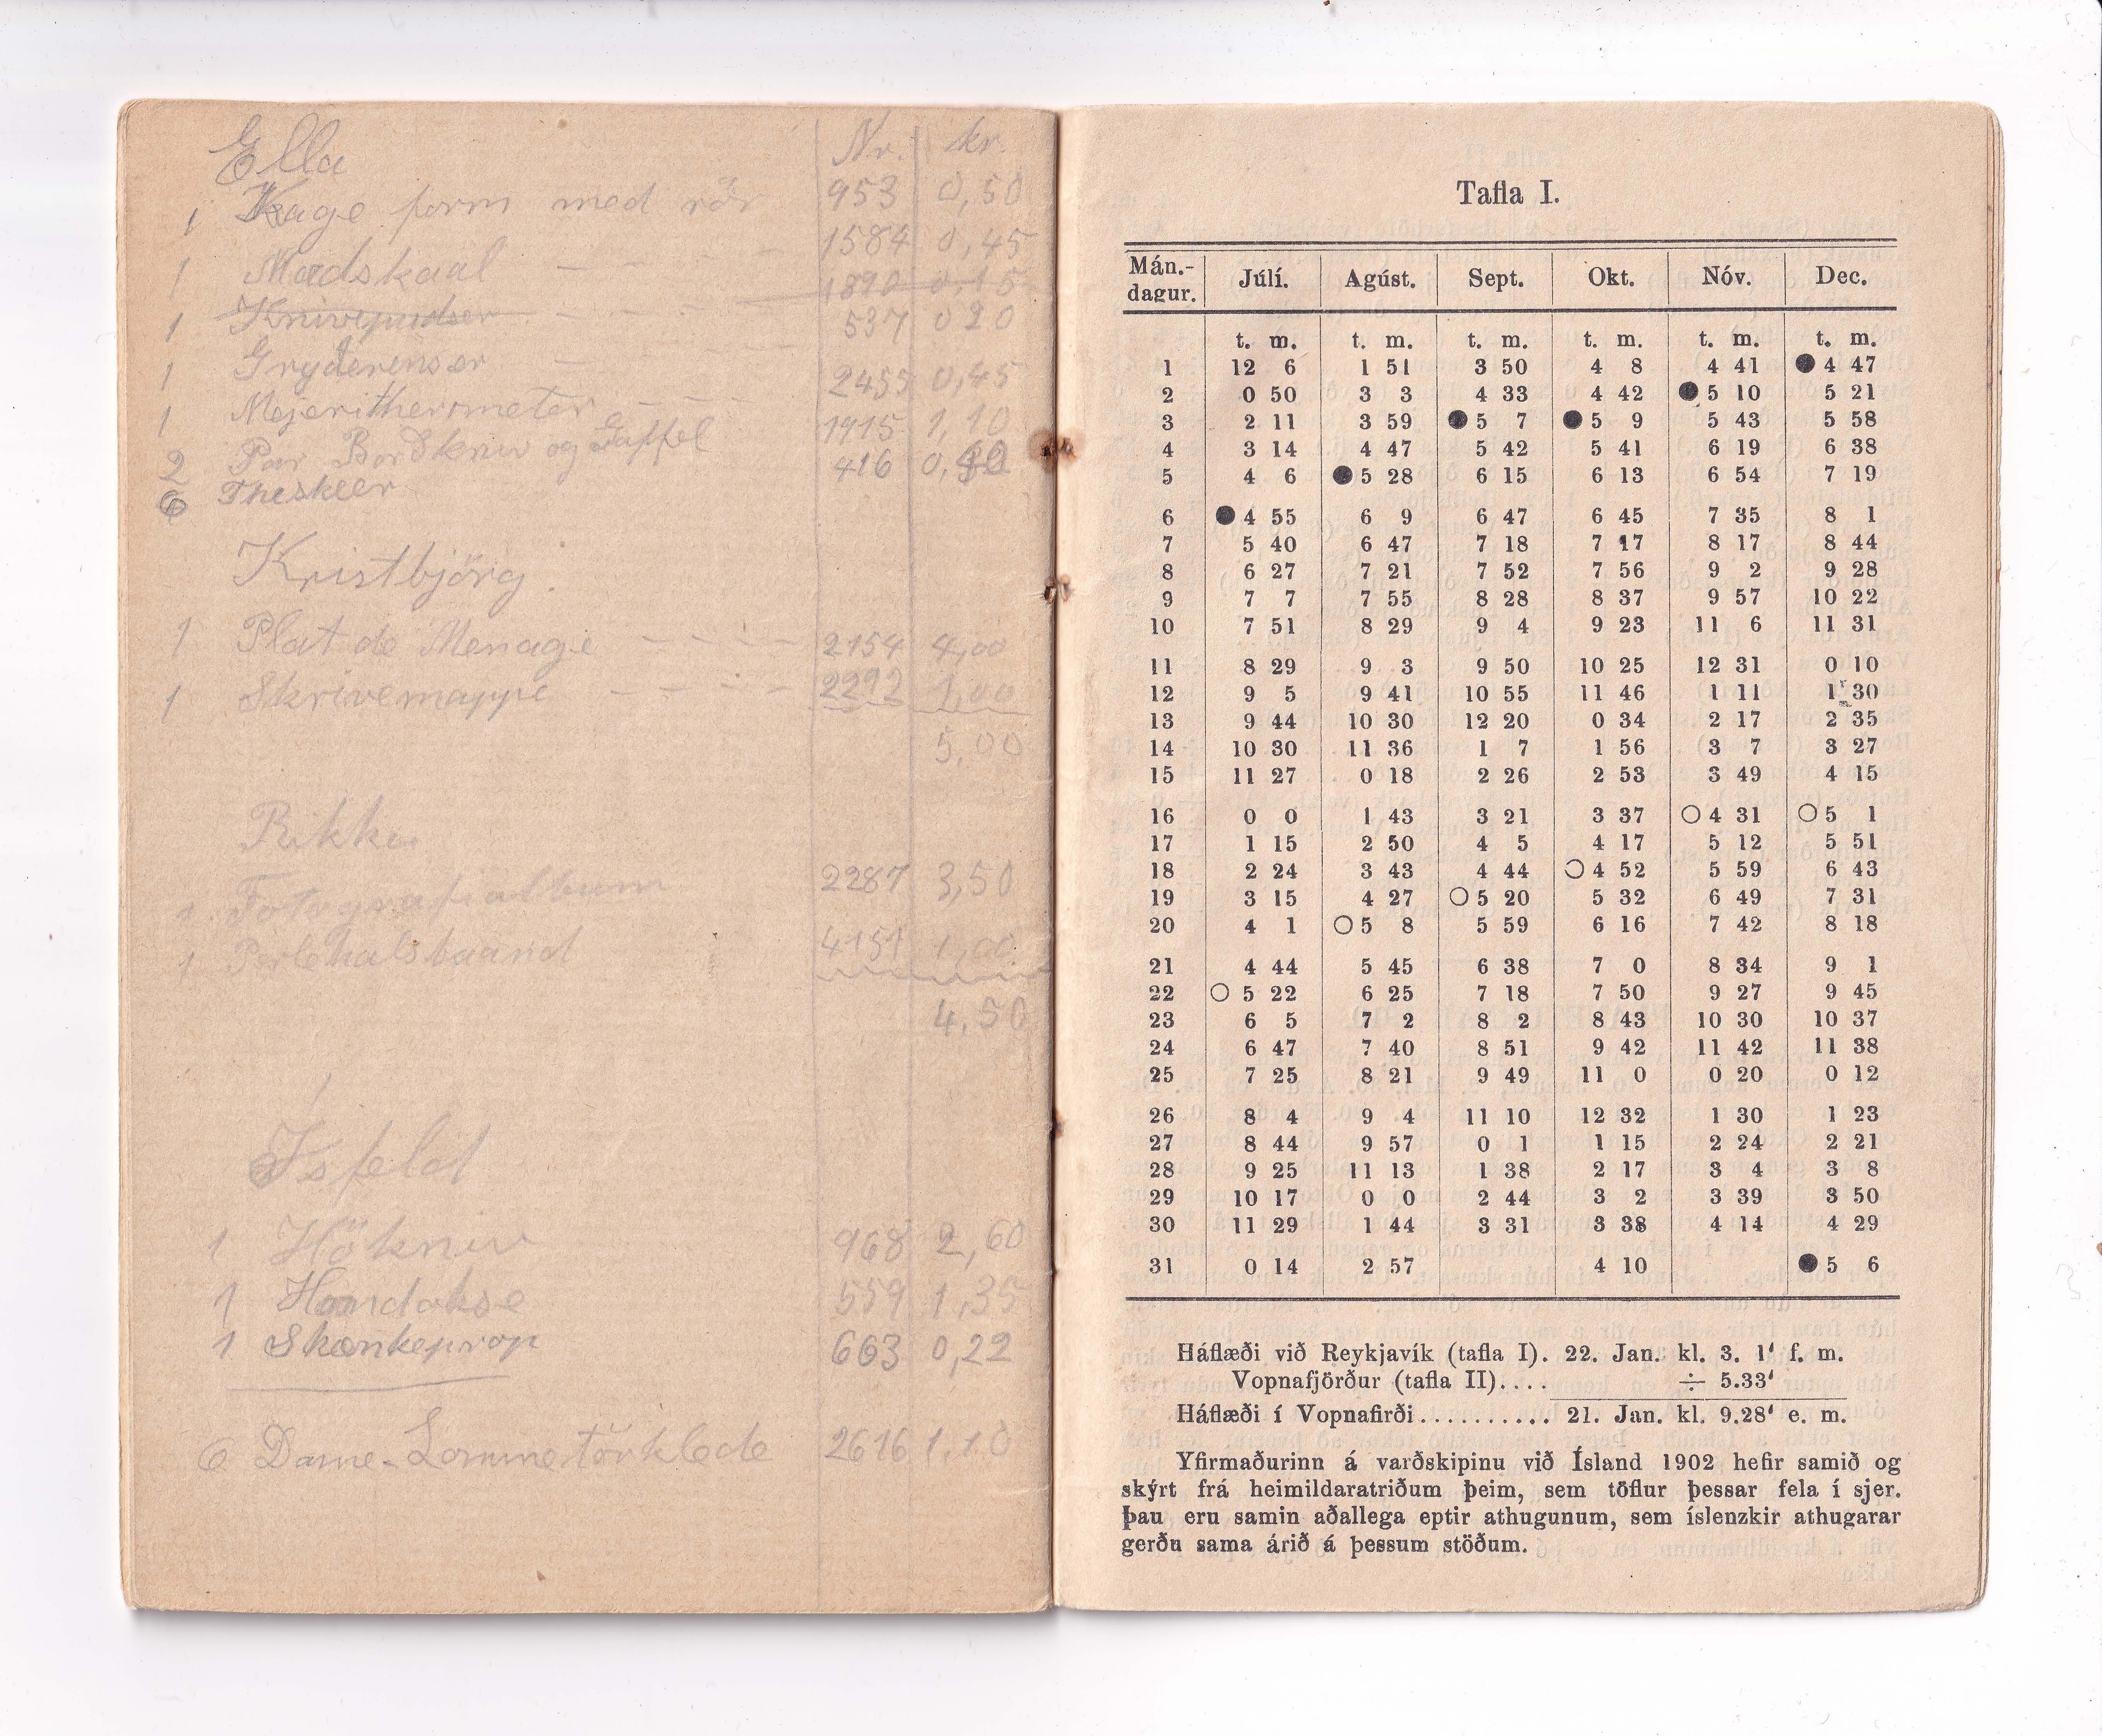 Ella Nr. kr.
1 Kage form med rör 953 0,50
1 Madskaal — — — 1584 0,45
1 — — — 1890 0,15
1 Gryderenser — — 537 0 20
1 Mejeritherometer — — — 2455 0,45
2 Par Bordkniv og Gaffel 1915 1,10
6 Theskeer 416 0,
Kristbjörg.
1 Plat de Menage — — — — 2154 4,00
1 Skrivemappe — — — — 2292 1,00
5,00
Rikka
1 Fotografialbum 2287 3,50
1 Perlehalsbaand 4151 1,00
4,50
Isfeld
1 Hökniv 968 2,60
1 Haandökse 559 1,35
1 Skænkeprop 663 0,22
6 Dame-Lommetörklede 2616 1,10
Tafla I.
Mán.-dagur. Júlí. Agúst. Sept. Okt. Nóv. Dec.
t. m. t. m. t. m. t. m. t. m. t. m.
1 12 6 1 51 3 50 4 8 4 41 ● 4 47
2 0 50 3 3 4 33 4 42 ● 5 10 5 21
3 2 11 3 59 ● 5 7 ● 5 9 5 43 5 58
4 3 14 4 47 5 42 5 41 6 19 6 38
5 4 6 ● 5 28 6 15 6 13 6 54 7 19
6 ● 4 55 6 9 6 47 6 45 7 35 8 1
7 5 40 6 47 7 18 7 17 8 17 8 44
8 6 27 7 21 7 52 7 56 9 2 9 28
9 7 7 7 55 8 28 8 37 9 57 10 22
10 7 51 8 29 9 4 9 23 11 6 11 31
11 8 29 9 3 9 50 10 25 12 31 0 10
12 9 5 9 41 10 55 11 46 1 11 1 30
13 9 44 10 30 12 20 0 34 2 17 2 35
14 10 30 11 36 1 7 1 56 3 7 3 27
15 11 27 0 18 2 26 2 53 3 49 4 15
16 0 0 1 43 3 21 3 37 ○ 4 31 ○ 5 1
17 1 15 2 50 4 5 4 17 5 12 5 51
18 2 24 3 43 4 44 ○ 4 52 5 59 6 43
19 3 15 4 27 ○ 5 20 5 32 6 49 7 31
20 4 1 ○ 5 8 5 59 6 16 7 42 8 18
21 4 44 5 45 6 38 7 0 8 34 9 1
22 ○ 5 22 6 25 7 18 7 50 9 27 9 45
23 6 5 7 2 8 2 8 43 10 30 10 37
24 6 47 7 40 8 51 9 42 11 42 11 38
25 7 25 8 21 9 49 11 0 0 20 0 12
26 8 4 9 4 11 10 12 32 1 30 1 23
27 8 44 9 57 0 1 1 15 2 24 2 21
28 9 25 11 13 1 38 2 17 3 4 3 8
29 10 17 0 0 2 44 3 2 3 39 3 50
30 11 29 1 44 3 31 3 38 4 14 4 29
31 0 14 2 57 4 10 ● 5 6
Háflæði við Reykjavík (tafla I). 22. Jan. kl. 3. 1' f. m.
Vopnafjörður (tafla II).... ÷ 5.33'
Háflæði í Vopnafirði.......... 21. Jan. kl. 9.28' e. m.
Yfirmaðurinn á varðskipinu við Ísland 1902 hefir samið og
skýrt frá heimildaratriðum þeim, sem töflur þessar fela í sjer.
Þau eru samin aðallega eptir athugunum, sem íslenzkir athugarar
gerðu sama árið á þessum stöðum.